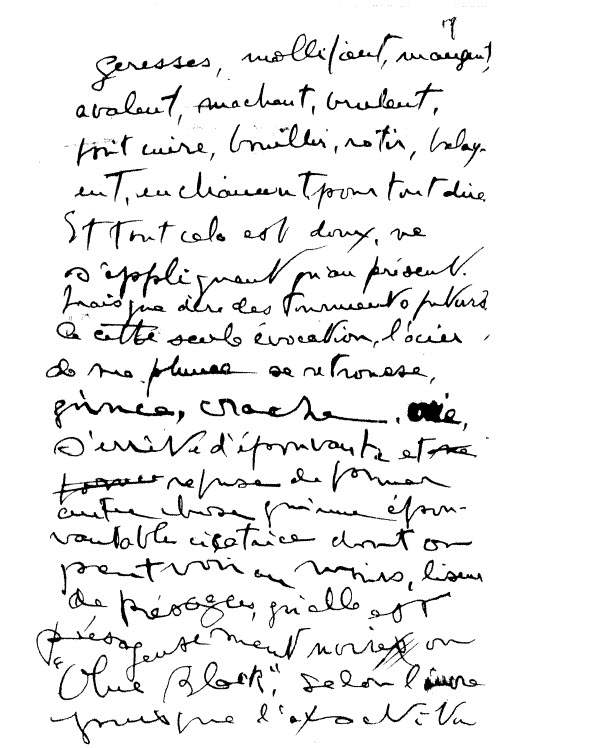 geresses, mollifient, mangent,
avalent, machent, brulent,
font cuire, bouillir, rotir, balay-
ent, enchainent, pour tout dire
Et tout cela est doux, ne
s'appliquant qu'au présent.
Mais que dire des tourments futurs
à cette seule évocation, l'acier
de ma plume se retrousse,
grince, crache, crie,
s'arrête d'épouvante et
refuse de former
autre chose qu'une épou-
vantable cicatrice dont on
peut voir au moins, liseur
de présages, qu'elle est
présageusement noire ou
"Blue Black", selon l'encre
puisque l'